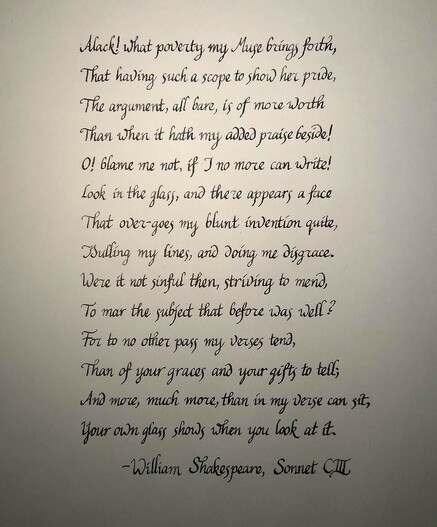 Alack! what poverty my Muse brings forth,
That having such a scope to show her pride,
The argument, all bare, is of more worth
Than when it hath my added praise beside!
O! blame me not, if I no more can write!
Look in the glass, and there appears a face
That over-goes my blunt invention quite,
Dulling my lines, and doing me disgrace.
Were it not sinful then, striving to mend,
To mar the subject that before was well?
For to no other pass my verses tend,
Than of your graces and your gifts to tell;
And more, much more, than in my verse can sit,
Your own glass shows when you look at it.
-William Shakespeare, Sonnet CIII